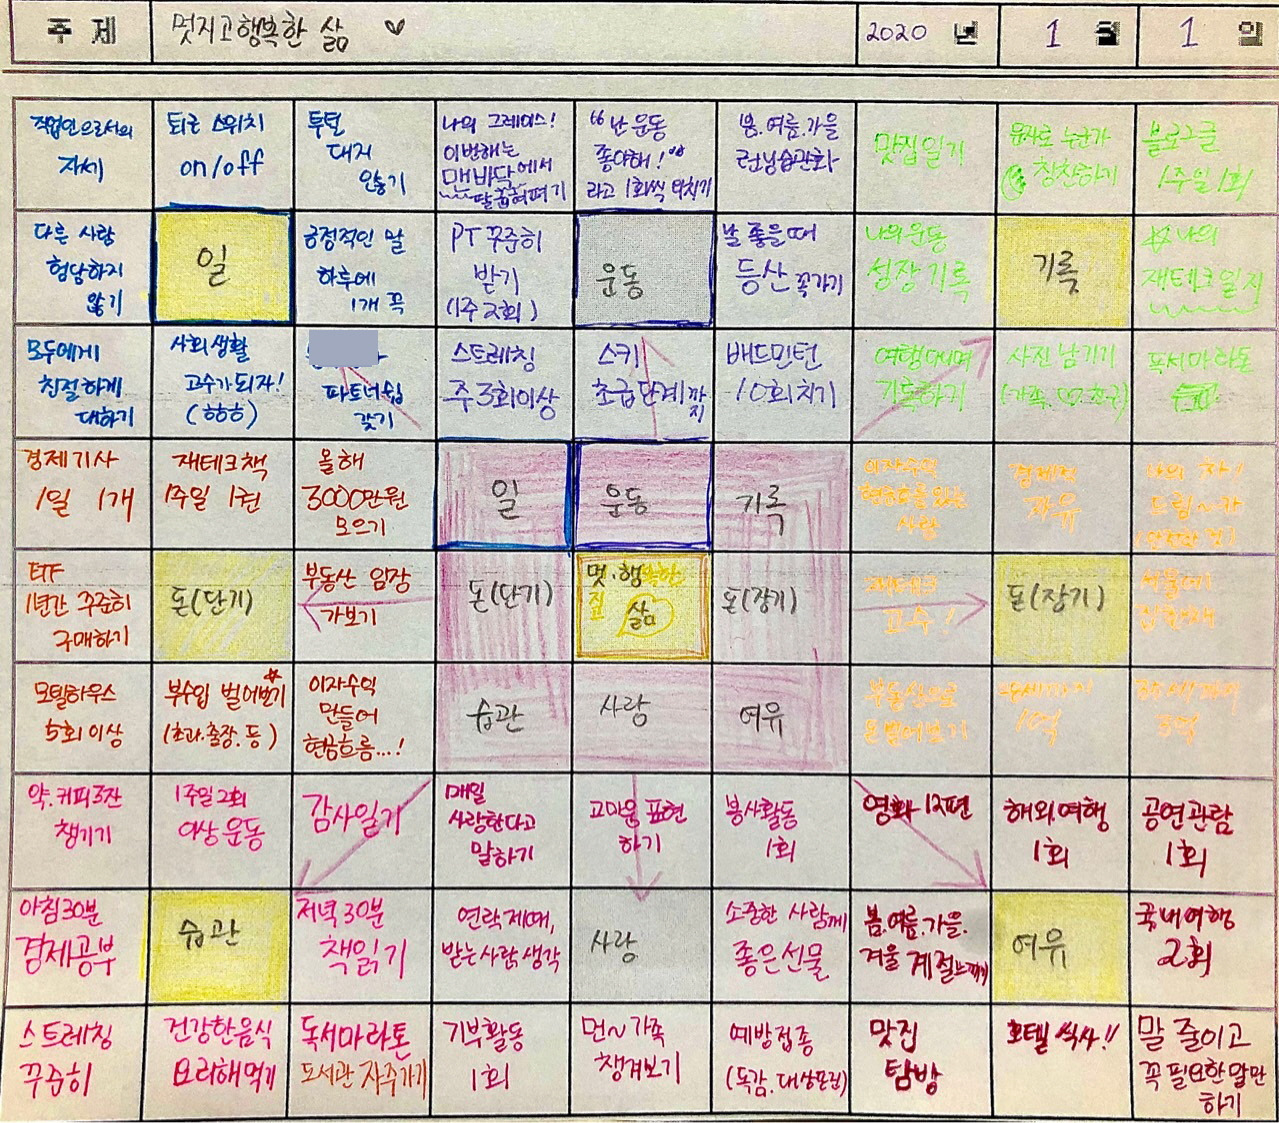 주 제 멋지고행복한 삶 ♡ 2020 년 1 월 1 일
직업인으로서의
자세
퇴근 스위치
on/off
투덜
대지
않기
나의 그레이스!
이번해는
맨바닥에서
팔굽혀펴기
"난 운동
좋아해!"
라고 1회씩 외치기
봄.여름.가을
런닝습관화
맛집일기
문자로 누군가
칭찬하기
블로그글
1주일 1회
다른 사람
험담하지
않기
일
긍정적인 말
하루에
1개 꼭
PT 꾸준히
받기
(1주 2회)
운동
날 좋을때
등산 꼭가기
나의운동
성장기록
기록
나의
재테크일지
모두에게
친절하게
대하기
사회생활
고수가되자!
(하하)
파트너쉽
갖기
스트레칭
주3회이상
스키
초급단계까지
배드민턴
10회치기
여행다니며
기록하기
사진 남기기
독서마라톤
경제기사
1일 1개
재테크책
1주일 1권
올해
3000만원
모으기
일
운동
기록
이자수익
현금흐름 있는
사람
경제적
자유
나의 차!
드림~카
(안전한 것)
ETF
1년간 꾸준히
구매하기
돈(단기)
부동산 임장
가보기
돈(단기)
멋.행복한
진
삶
돈(장기)
재테크
고수!
돈(장기)
서울에
집한채
모델하우스
5회이상
부수입 벌어보기
(초과.출장.등)
이자수익
만들어
현금흐름...!
습관
사랑
여유
부동산으로
돈벌어보기
1억
약.커피3잔
챙기기
1주일 2회
이상 운동
감사일기
매일
사랑한다고
말하기
고마움 표현
하기
봉사활동
1회
영화 12편
해외여행
1회
공연관람
1회
아침30분
경제공부
습관
저녁30분
책읽기
연락 제때,
받는사람 생각
사랑
소중한 사람께
좋은선물
봄.여름.가을.
겨울 계절느끼기
여유
국내여행
2회
스트레칭
꾸준히
건강한음식
요리해먹기
독서마라톤
도서관 자주가기
기부활동
1회
먼~가족
챙겨보기
예방접종
(독감.대상포진)
맛집
탐방
호텔식사!!
말 줄이고
꼭 필요한 말만
하기